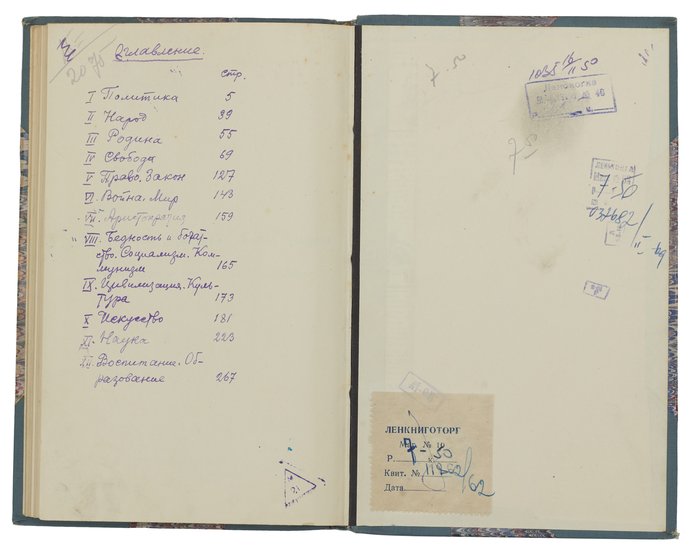 2075
Оглавление.
стр.
I Политика 5
II Народ 39
III Родина 55
IV Свобода 69
V Право. Закон 127
VI. Война. Мир 143
VII. Аристократия 159
VIII. Бедность и богат-
ство. Социализм. Ком-
мунизм 165
IX. Цивилизация. Куль-
тура 173
X Искусство 181
XI. Наука 223
XII. Воспитание. Об-
разование 267
7-50
7-50
7-50
ЛЕНКНИГОТОРГ
Маг. № 10
Р. 7-50
Квит. №
Дата